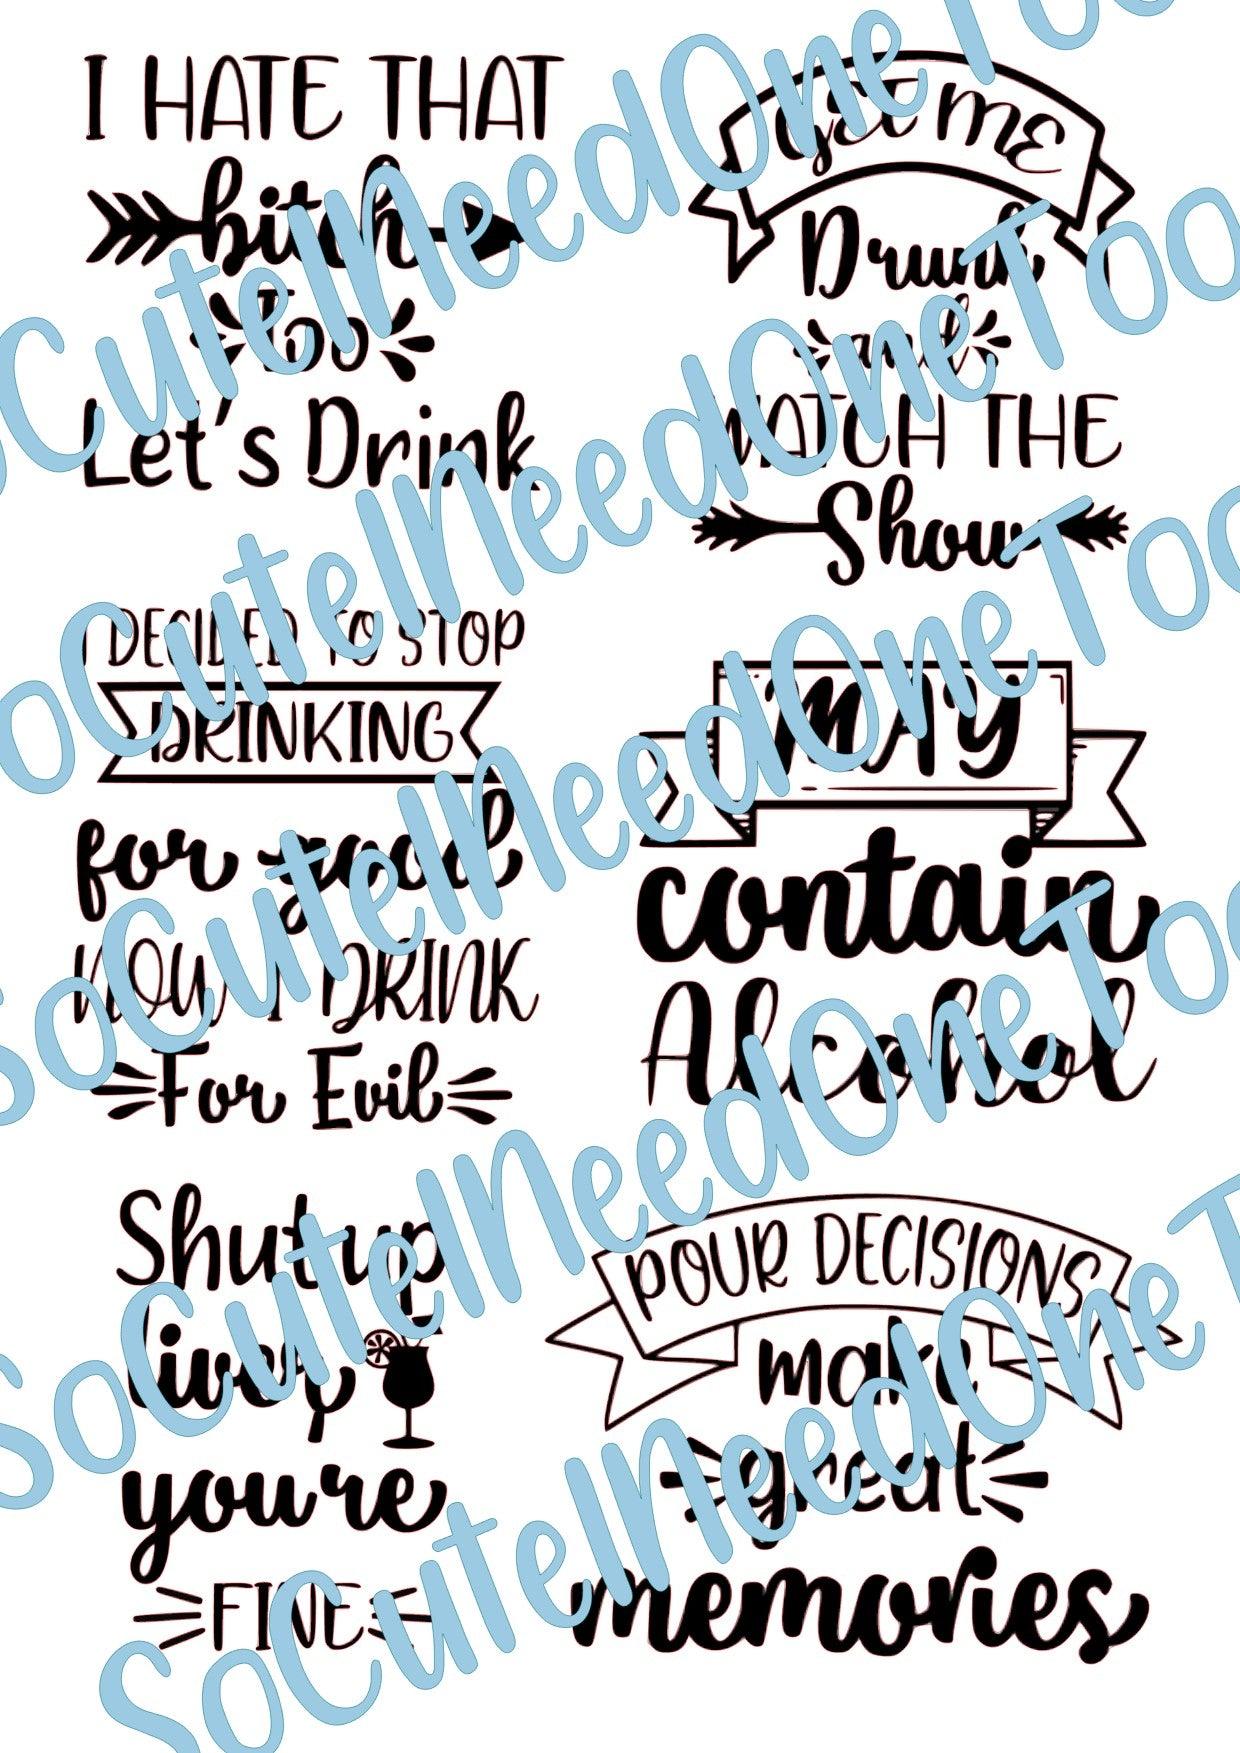 I HATE THAT
bitch
Too
Let's Drink
GET ME
Drunk
and
WATCH THE
Show
I DECIDED TO STOP
DRINKING
for good
NOW I DRINK
For Evil
MAY
contain
Alcohol
Shut up
liver
you're
FINE
POUR DECISIONS
make
great
memories
SoCuteINeedOneToo
SoCuteINeedOneToo
SoCuteINeedOneToo
SoCuteINeedOneToo
SoCuteINeedOneT